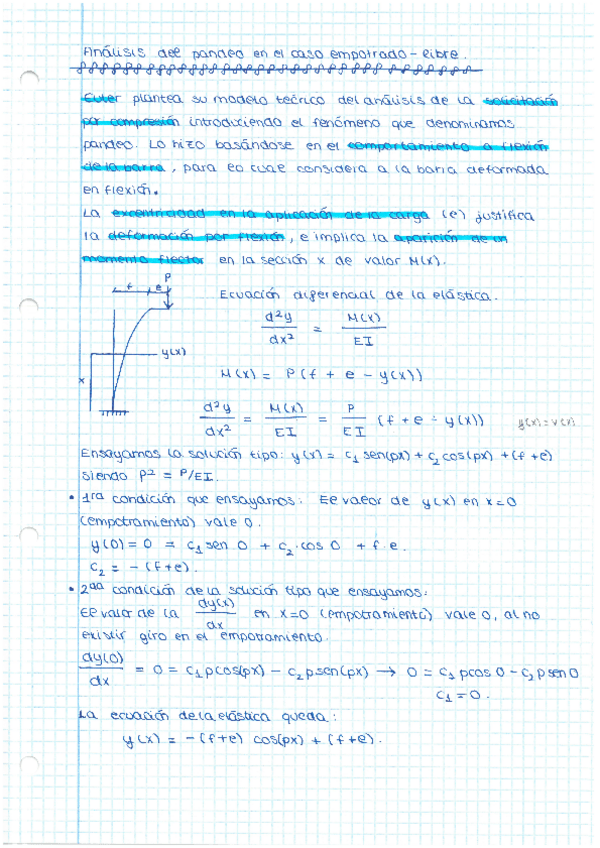 Análisis del pandeo en el caso empotrado-libre.
Euler plantea su modelo teórico del análisis de la solicitación
por compresión introduciendo el fenómeno que denominamos
pandeo. Lo hizo basándose en el comportamiento a flexión
de la barra, para lo cual considera a la barra deformada
en flexión.
La excentricidad en la aplicación de la carga (e) justifica
la deformación por flexión, e implica la aparición de un
momento flector en la sección x de valor M(x).
P
f e
y(x)
x
Ecuación diferencial de la elástica.
d²y/dx² = M(x)/EI
M(x) = P(f + e - y(x))
d²y/dx² = M(x)/EI = P/EI (f + e - y(x)) y(x) = v(x)
Ensayamos la solución tipo: y(x) = c₁ sen(px) + c₂ cos(px) + (f + e)
siendo p² = P/EI.
• 1ra condición que ensayamos: El valor de y(x) en x=0
(empotramiento) vale 0.
y(0) = 0 = c₁ sen 0 + c₂ · cos 0 + f · e.
c₂ = - (f+e).
• 2da condición de la solución tipo que ensayamos:
El valor de la dy(x)/dx en x=0 (empotramiento) vale 0, al no
existir giro en el empotramiento.
dy(0)/dx = 0 = c₁ p cos(px) - c₂ p sen(px) → 0 = c₁ p cos 0 - c₂ p sen 0
c₁ = 0.
La ecuación de la elástica queda:
y(x) = - (f+e) cos(px) + (f+e).